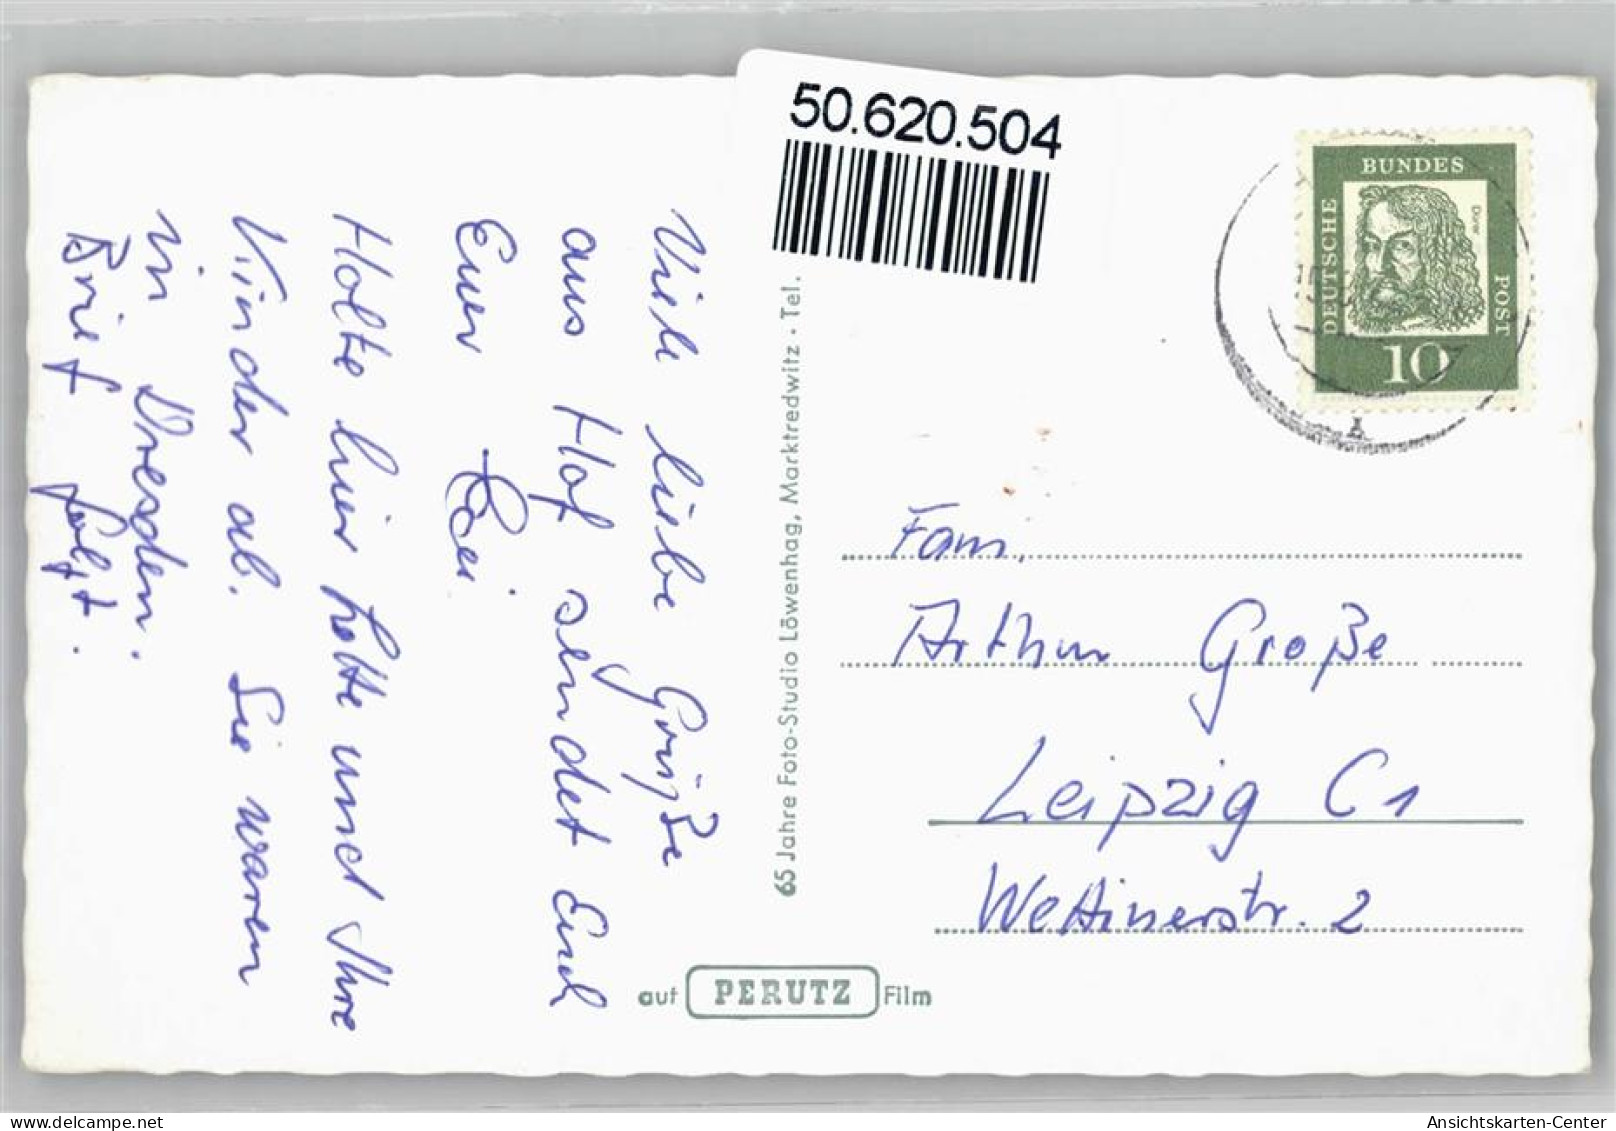 50.620.504
BUNDES
DEUTSCHE
POST
Dürer
10
A
Viele liebe Grüße
aus Hof sendet Euch
Euer
Holte hier Lotte und Ihre
Kinder ab. Sie waren
in Dresden.
Brief folgt.
65 Jahre Foto-Studio Löwenhag, Marktredwitz · Tel.
Fam.
Arthur Große
Leipzig C1
Wettinerstr. 2
auf PERUTZ Film
Ansichtskarten-Center